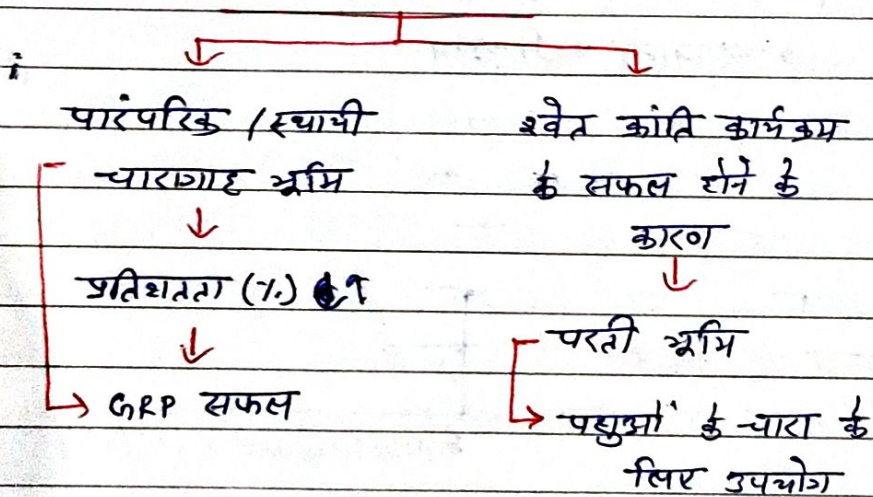 i
पारंपरिक / स्थायी
चारागाह भूमि
प्रतिशतता (%) ↑
GRP सफल
श्वेत क्रांति कार्यक्रम
के सफल होने के
कारण
परती भूमि
पशुओं के चारा के
लिए उपयोग